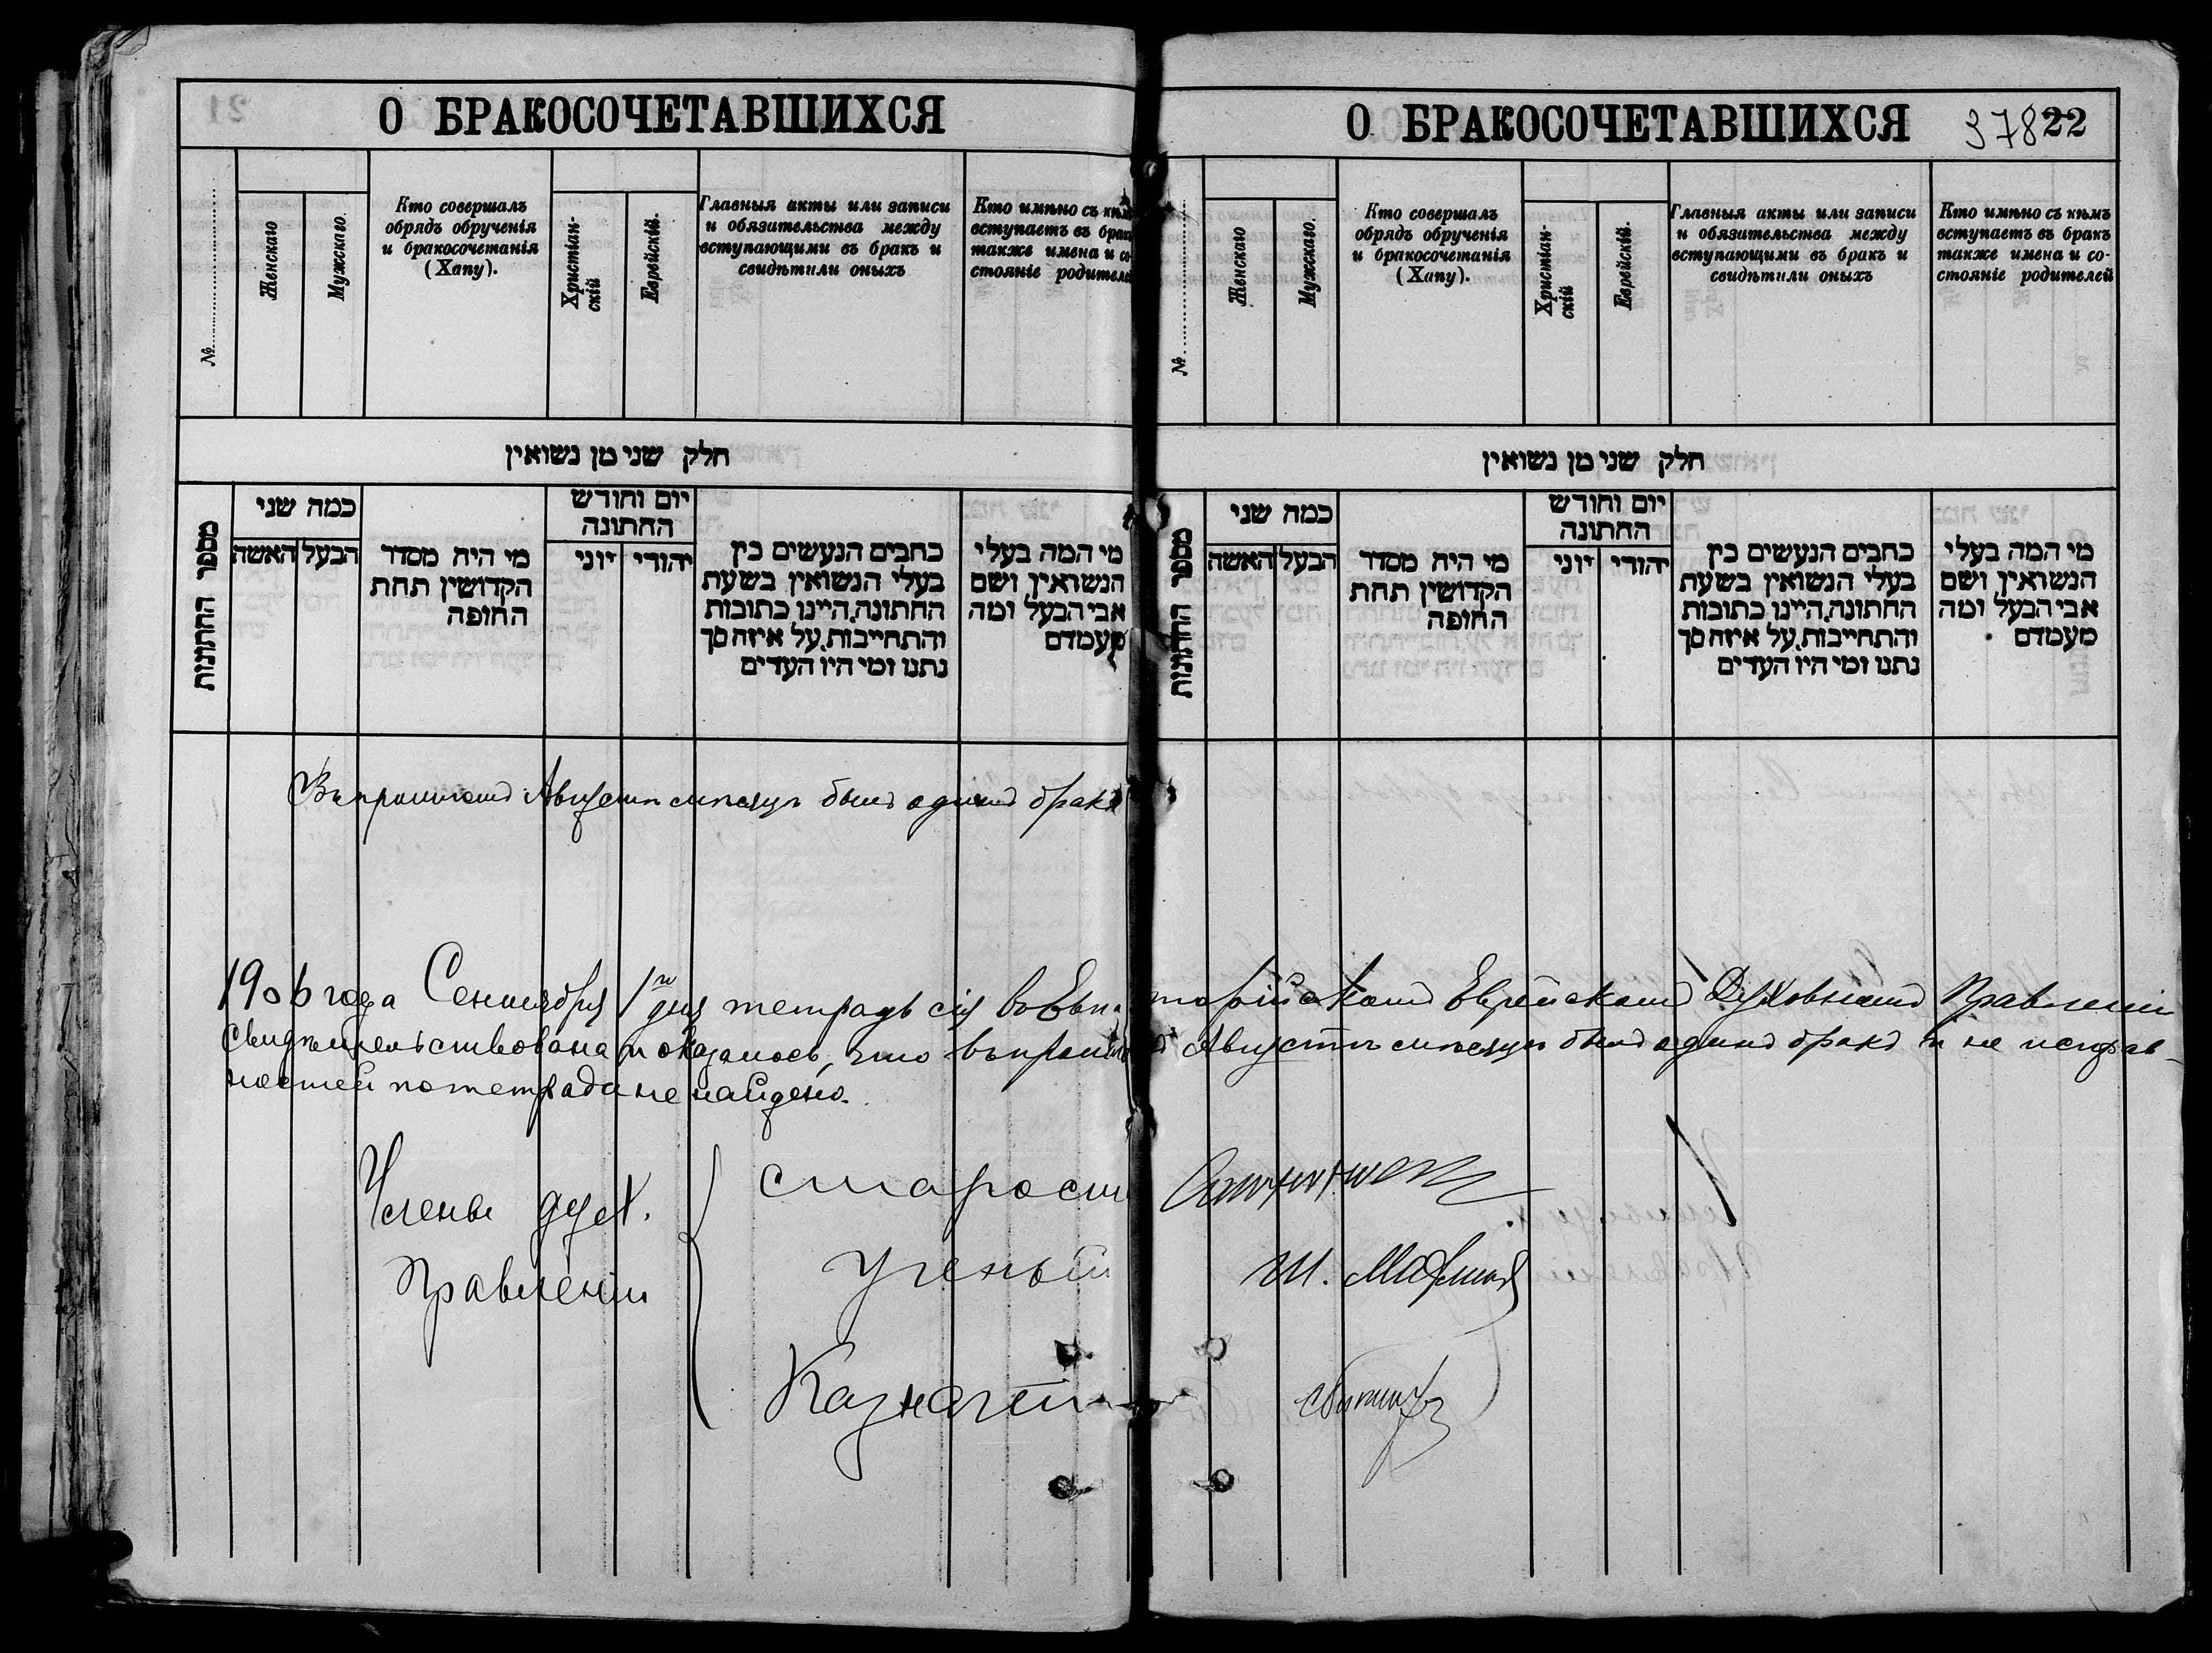 О БРАКОСОЧЕТАВШИХСЯ
№
Женскаго
Мужскаго.
Кто совершалъ
обрядъ обрученія
и бракосочетанія
(Хапу).
Христіан-
скій
Еврейскій.
Главныя акты или записи
и обязательства между
вступающими въ бракъ и
свидѣтили оныхъ
Кто имѣно съ кѣмъ
вступаетъ въ бракъ
также имена и со-
стояніе родителей
חלק שני מן נשואין
מספר החתונות
כמה שני
האשה
הבעל
מי היה מסדר
הקדושין תחת
החופה
יום וחודש
החתונה
יוני
יהודי
כתבים הנעשים בין
בעלי הנשואין בשעת
החתונה, היינו כתובות
והתחייבות, על איזה סך
נתנו ומי היו העדים
מי המה בעלי
הנשואין ושם
אבי הבעל ומה
מעמדם
О БРАКОСОЧЕТАВШИХСЯ 378 22
№
Женскаго
Мужскаго.
Кто совершалъ
обрядъ обрученія
и бракосочетанія
(Хапу).
Христіан-
скій
Еврейскій.
Главныя акты или записи
и обязательства между
вступающими въ бракъ и
свидѣтили оныхъ
Кто имѣно съ кѣмъ
вступаетъ въ бракъ
также имена и со-
стояніе родителей
חלק שני מן נשואין
מספר החתונות
כמה שני
האשה
הבעל
מי היה מסדר
הקדושין תחת
החופה
יום וחודש
החתונה
יוני
יהודי
כתבים הנעשים בין
בעלי הנשואין בשעת
החתונה, היינו כתובות
והתחייבות, על איזה סך
נתנו ומי היו העדים
מי המה בעלי
הנשואין ושם
אבי הבעל ומה
מעמדם
Въ прошломъ Августѣ мѣсяцѣ былъ одинъ бракъ
1906 года Сентября 1го дня тетрадь сія въ Евпаторійскомъ Еврейскомъ Духовномъ Правленіи
свидѣтельствована и оказалось, что въ прошломъ Августѣ мѣсяцѣ былъ одинъ бракъ и не исправ-
ностей по тетради не найдено.
Члены дух.
Правленія
Староста
Ученый
Казначей